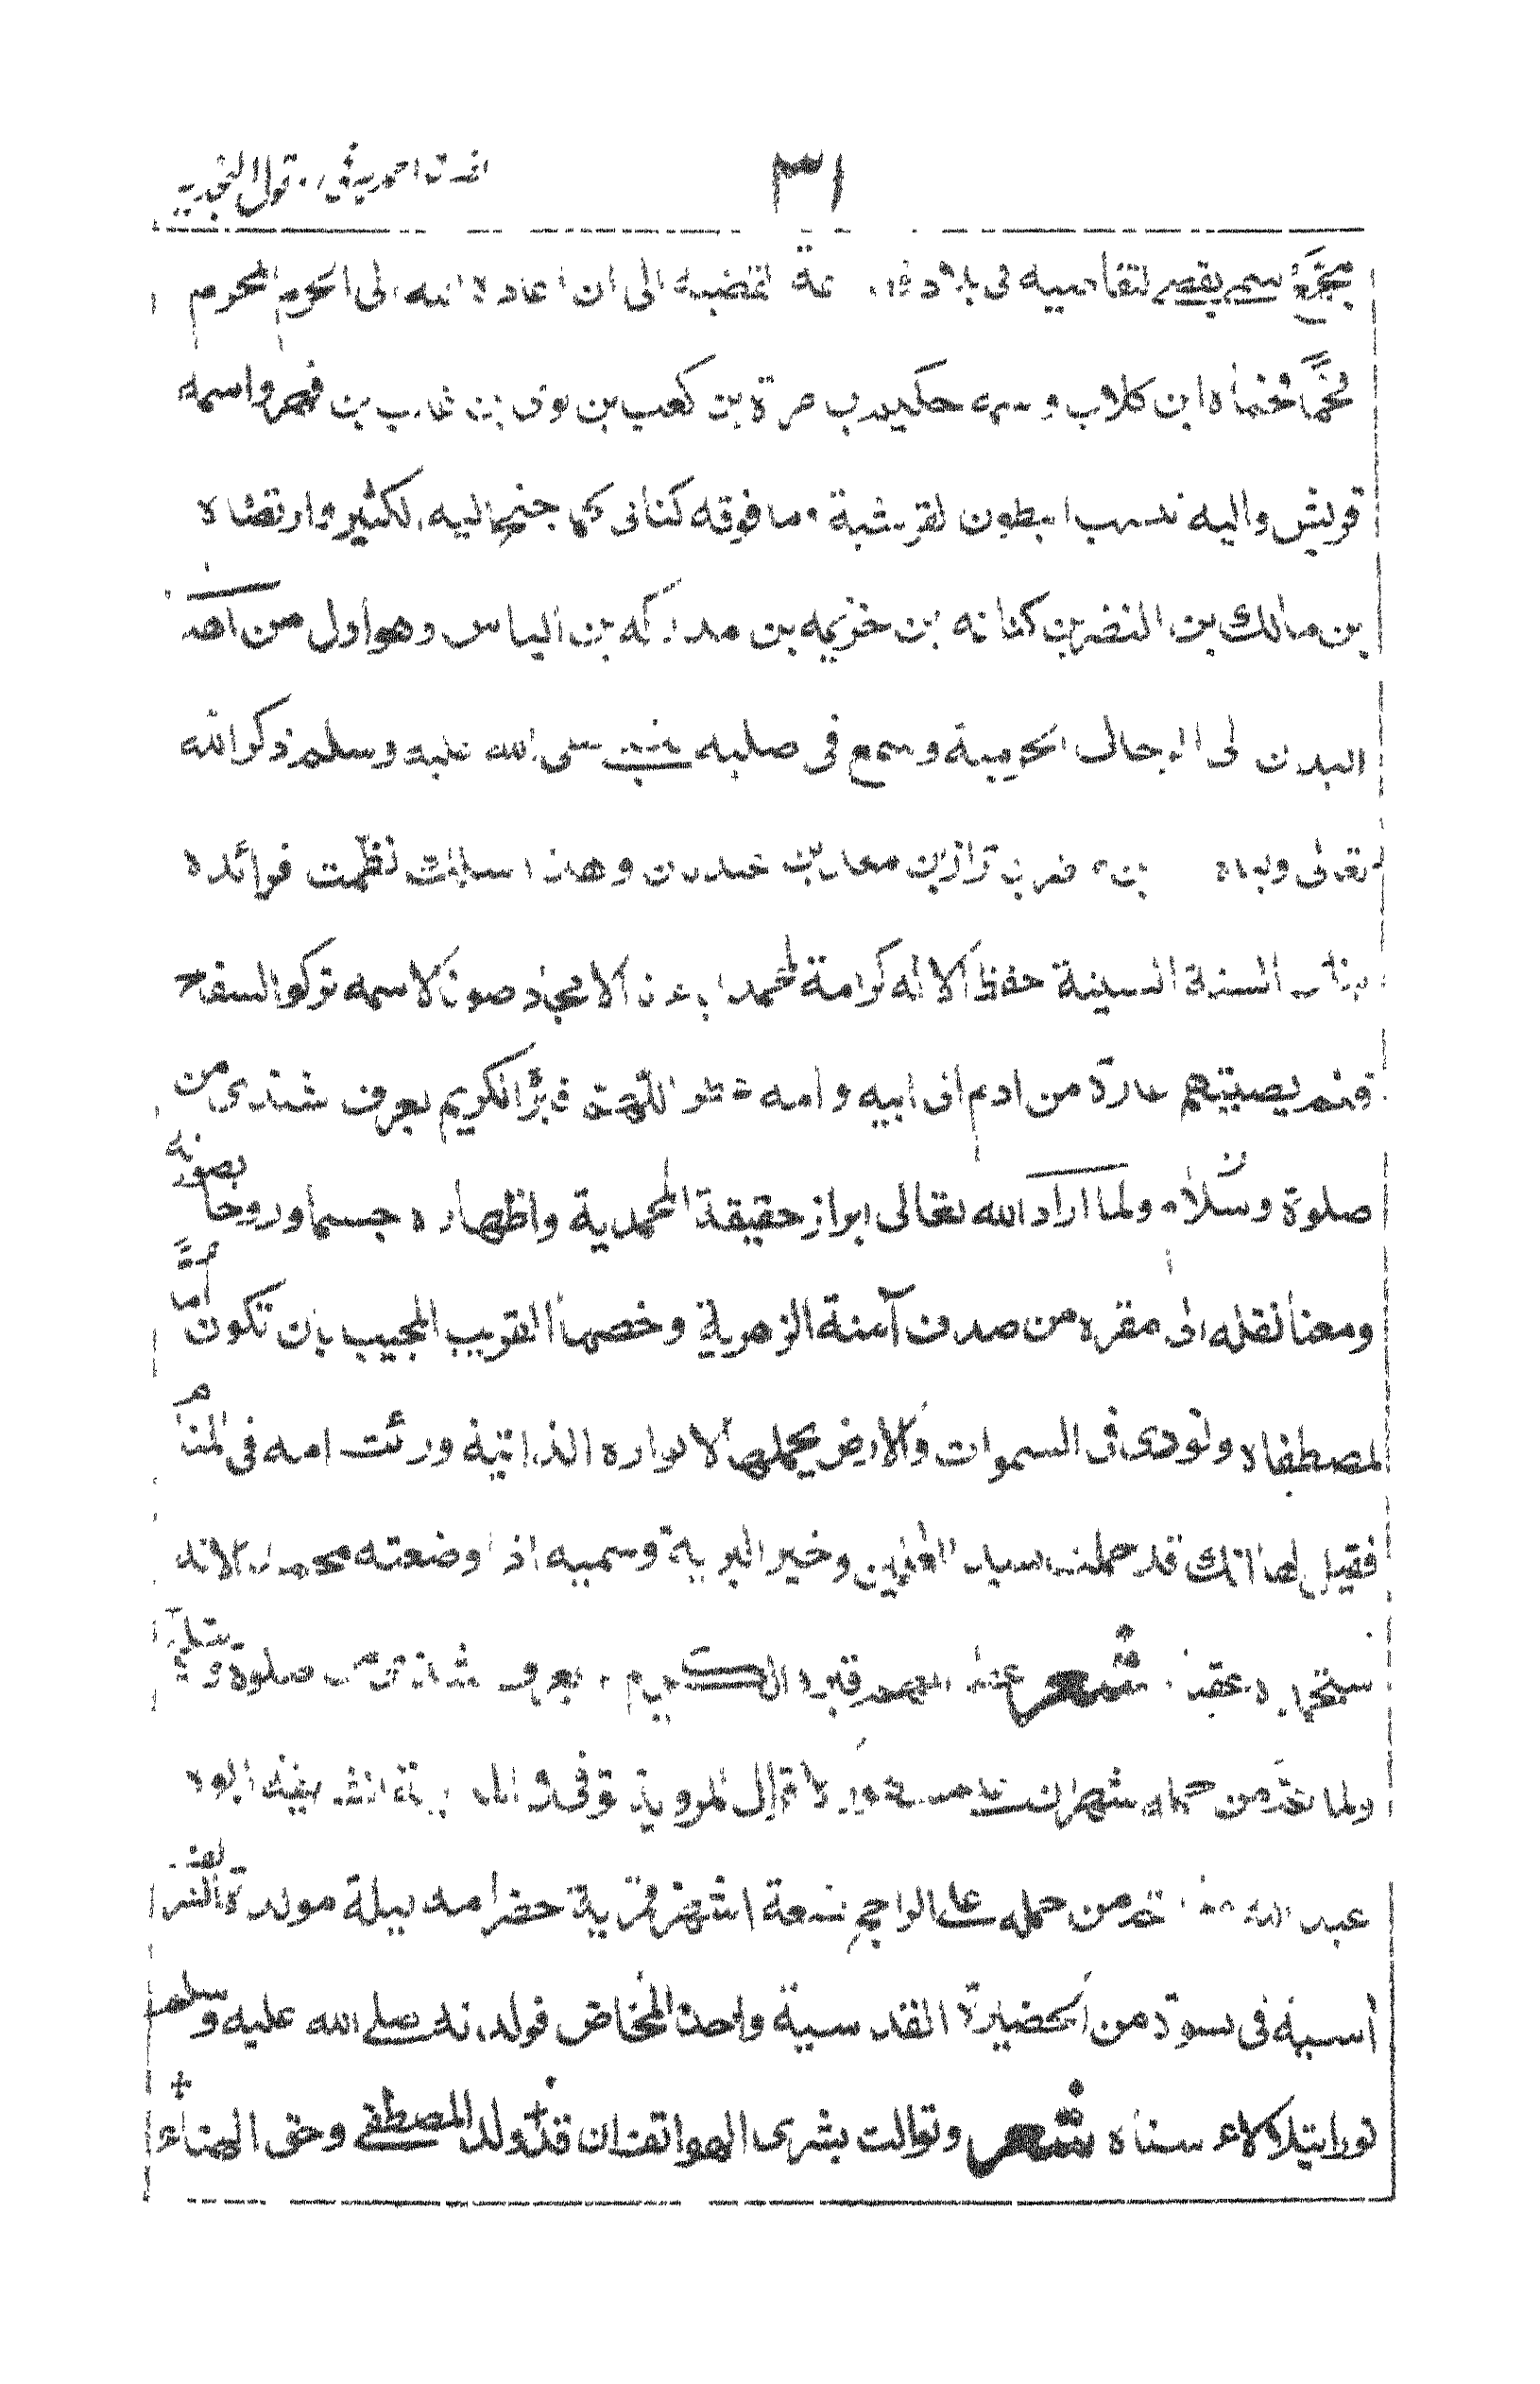 ٣١
مجمّع سمي بقصي لتقاصيه في بلاد قضاعة القضيه الى ان اعاده الله الى الحرم المحرم
فحمى حماه ابن كلاب واسمه حكيم بن مرة بن كعب بن لوى بن غالب بن فهر واسمه
قريش واليه تنسب البطون القرشية وما فوقه كنانى كما جنح اليه الكثير وارتضاه
بن مالك بن النضر بن كنانه بن خزيمه بن مدركه بن الياس وهو اول من اهد
البدن الى الرحال الحرمية وسمع في صلبه النبي صلى الله عليه وسلم ذكر الله
تعالى ولباه بن مضر بن نزار بن معد بن عدنان وهذا سلك نظمت فرائده
بنان السنة السنية حفظ الاله كرامة لمحمد اباءه الامجاد صونا لاسمه تركوا السفاح
فلم يصبهم عاره من ادم الى ابيه وامه عطر اللهم قبره الكريم بعرف شذى من
صلوة وسلام ولما اراد الله تعالى ابراز حقيقة المحمدية واظهاره جسما وروحا بصورته
ومعنا نقله الى مقره من صدف آمنة الزهرية وخصها القريب المجيب بان تكون امّاً
لمصطفاه ونودى في السموات والارض بحملها لانواره الذاتية ورئت امه في المنام
فقيل لها انك قد حملت بسيد العٰلمين وخير البرية وسميه اذا وضعته محمدا لانه
ستحمد عقباه شعر عطر اللهم قبره الكريم بعرف شذى من صلوة وتسليم
ولما تم من حمله شهران على مشهور الاقوال المروية توفى في المدينة الشريفة ابوه
عبد الله ولما تم من حمله على الراجح تسعة اشهر قمرية حضر امه ليلة مولده الشريف
آسية في نسوة من الحضيرة القدسية واخذ المخاض فولدته صلى الله عليه وسلم
نورا يتلألاء سناه شعر وتوالت بشرى الهواتف ان قد ولد المصطفى وحق الهناء